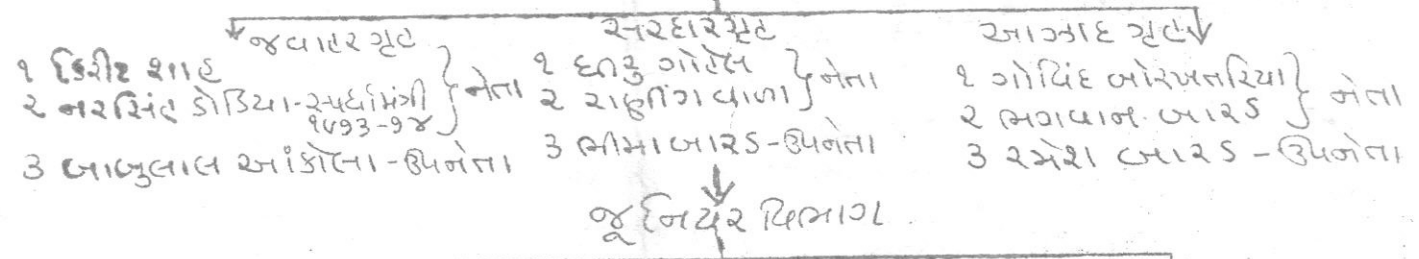 જવાહર ગૃહ
૧ કિરીટ શાહ
૨ નરસિંહ ડોડિયા-સ્પર્ધામંત્રી } નેતા
૧૯૭૩-૭૪
૩ બાબુલાલ આંકોલા-ઉપનેતા
સરદાર ગૃહ
૧ ધનરુ ગોહેલ } નેતા
૨ રાણીંગ વાળા
૩ ભીમા બારડ-ઉપનેતા
આઝાદ ગૃહ
૧ ગોવિંદ બોરખતરિયા } નેતા
૨ ભગવાન બારડ
૩ રમેશ બારડ - ઉપનેતા
જૂનિયર વિભાગ